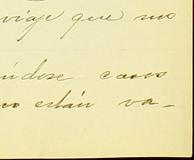 viaje que nos
ndose casos
no están va-